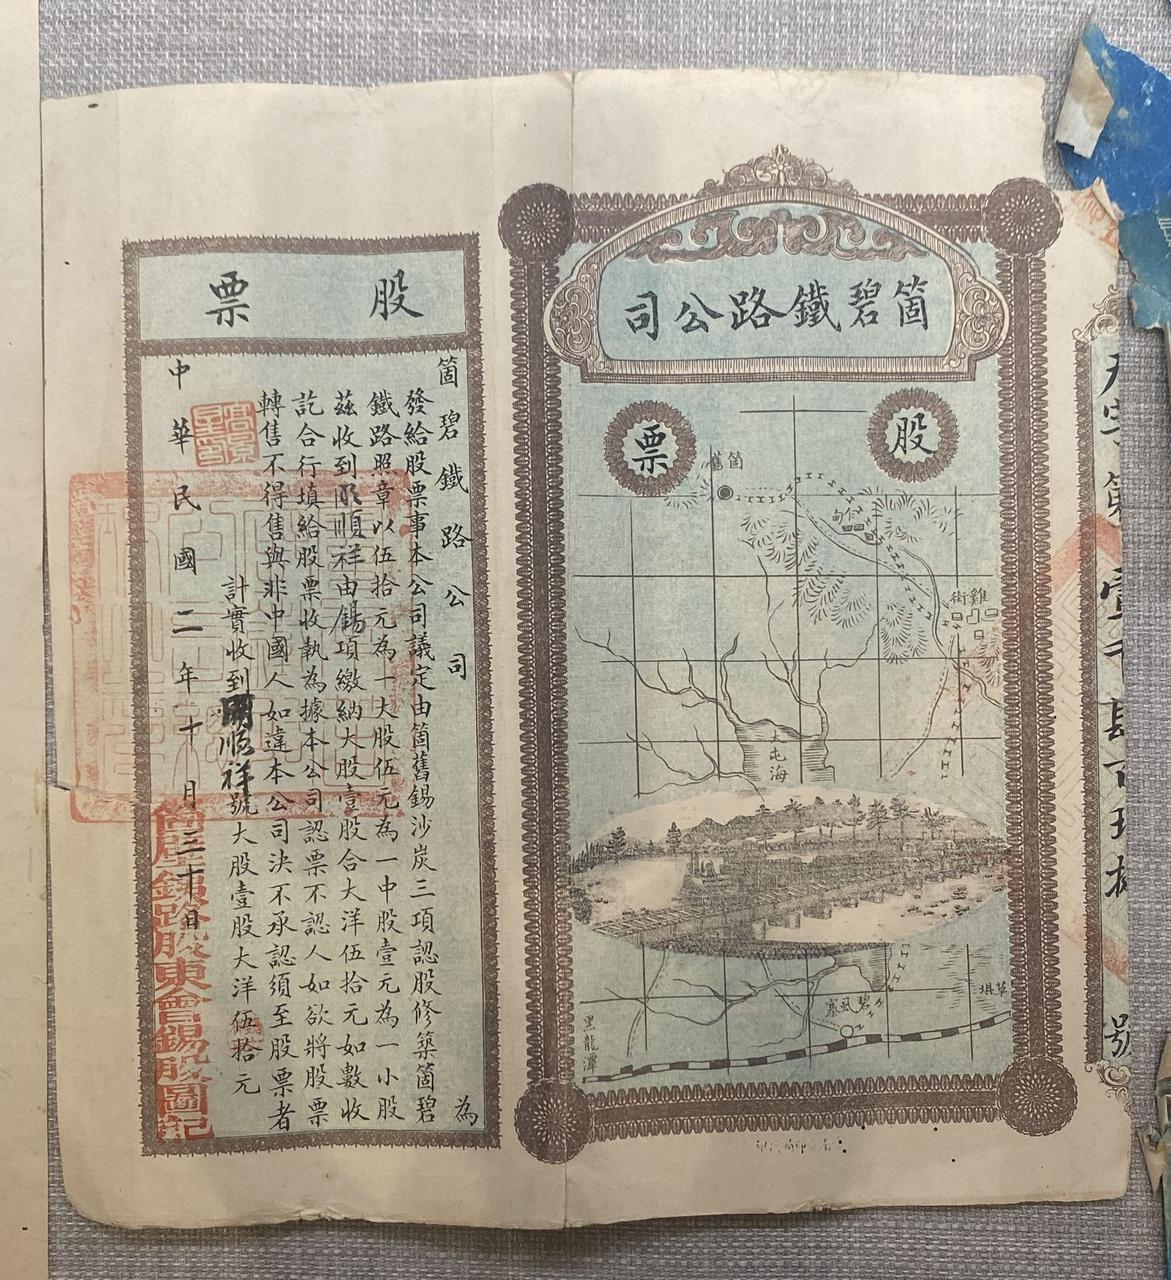 天字第壹千
號
箇碧鐵路公司
股票
箇舊
雞街
屯海
碧虱寨
草垻
黑龍潭
股票
箇碧鐵路公司為
發給股票事本公司議定由箇舊錫沙炭三項認股修築箇碧
鐵路照章以伍拾元為一大股伍元為一中股壹元為一小股
茲收到順祥由錫項繳納大股壹股合大洋伍拾元如數收
訖合行填給股票收執為據本公司認票不認人如欲將股票
轉售不得售與非中國人如違本公司決不承認須至股票者
計實收到順祥號大股壹股大洋伍拾元
中華民國二年十月三十日
箇碧鐵路股東會錫股圖記